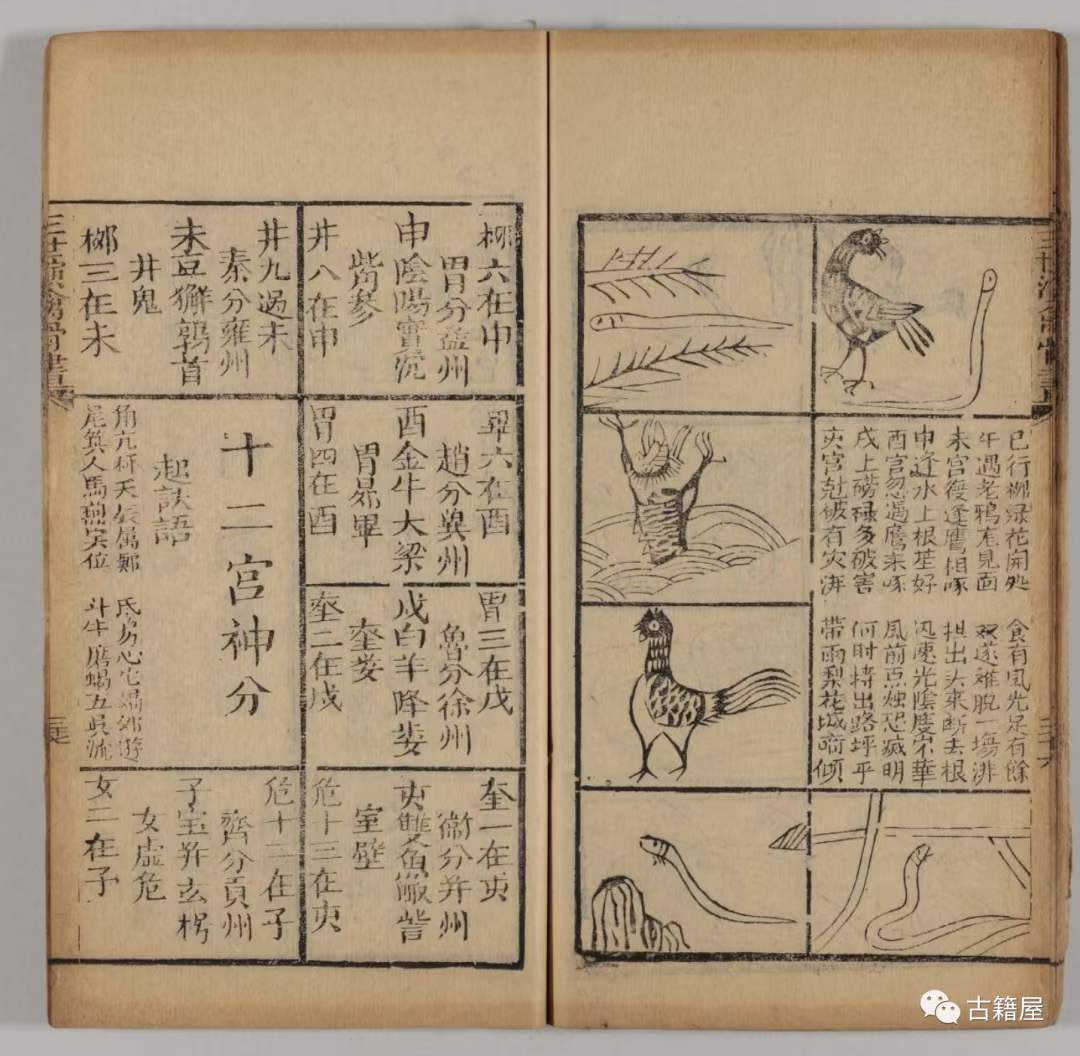 巳行柳緑花開処
午遇老鴉 見面
未宮復逢鷹相啄
申逢水上根荄好
酉宮忽遇鷹來啄
戌上 禄多破害
亥宮尅破有灾
食有風光足有餘
双遂難脫一塲
担出头來断去根
迅速光陰度 華
風前点烛恐滅明
何时 出路坪平
帶雨梨花城 倾
柳六在申
胃分益州
申陰陽實沈
觜參
井八在申
井九過未
秦分雍州
未 獬鶉首
井鬼
柳三在未
畢六在酉
趙分兾州
酉金牛大梁
胃昴畢
胃四在酉
十二宮神分
起訣語
角亢秤天辰属鄭
氐房心宅蝎 遊
尾箕人馬燕寅位
斗牛磨蝎五吳流
胃三在戌
魯分徐州
戌白羊降婁
奎婁
奎二在戌
奎一在亥
衞分并州
亥雙魚娵訾
室壁
危十三在亥
危十二在子
齊分貢州
子宝瓶玄枵
女虛危
女二在子
古籍屋